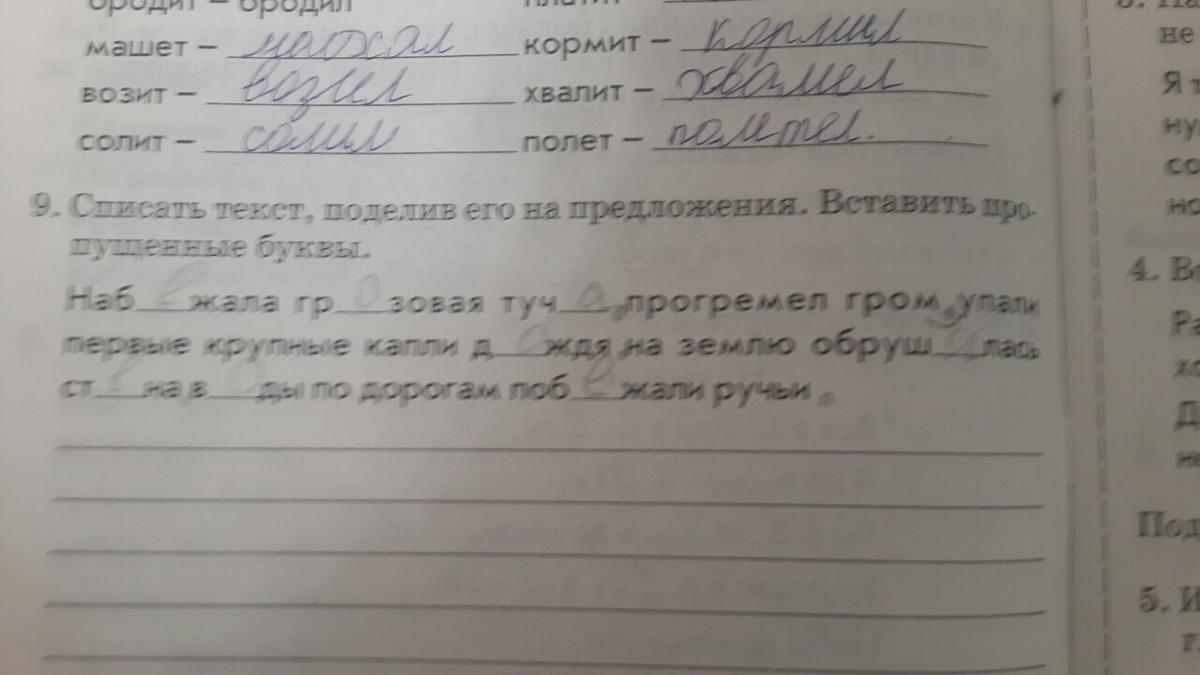 бродит – бродил
машет – махал кормит – кормил
возит – возил хвалит – хвалил
солит – солил полет – полетел.
9. Списать текст, поделив его на предложения. Вставить про-
пущенные буквы.
Наб е жала гр о зовая туч а , прогремел гром, упали
первые крупные капли д о ждя, на землю обруш и лась
ст е на в о ды по дорогам поб е жали ручьи .
не
Я т
ну
со
но
4. В
Ра
хо
Д
не
Под
5. И
г.